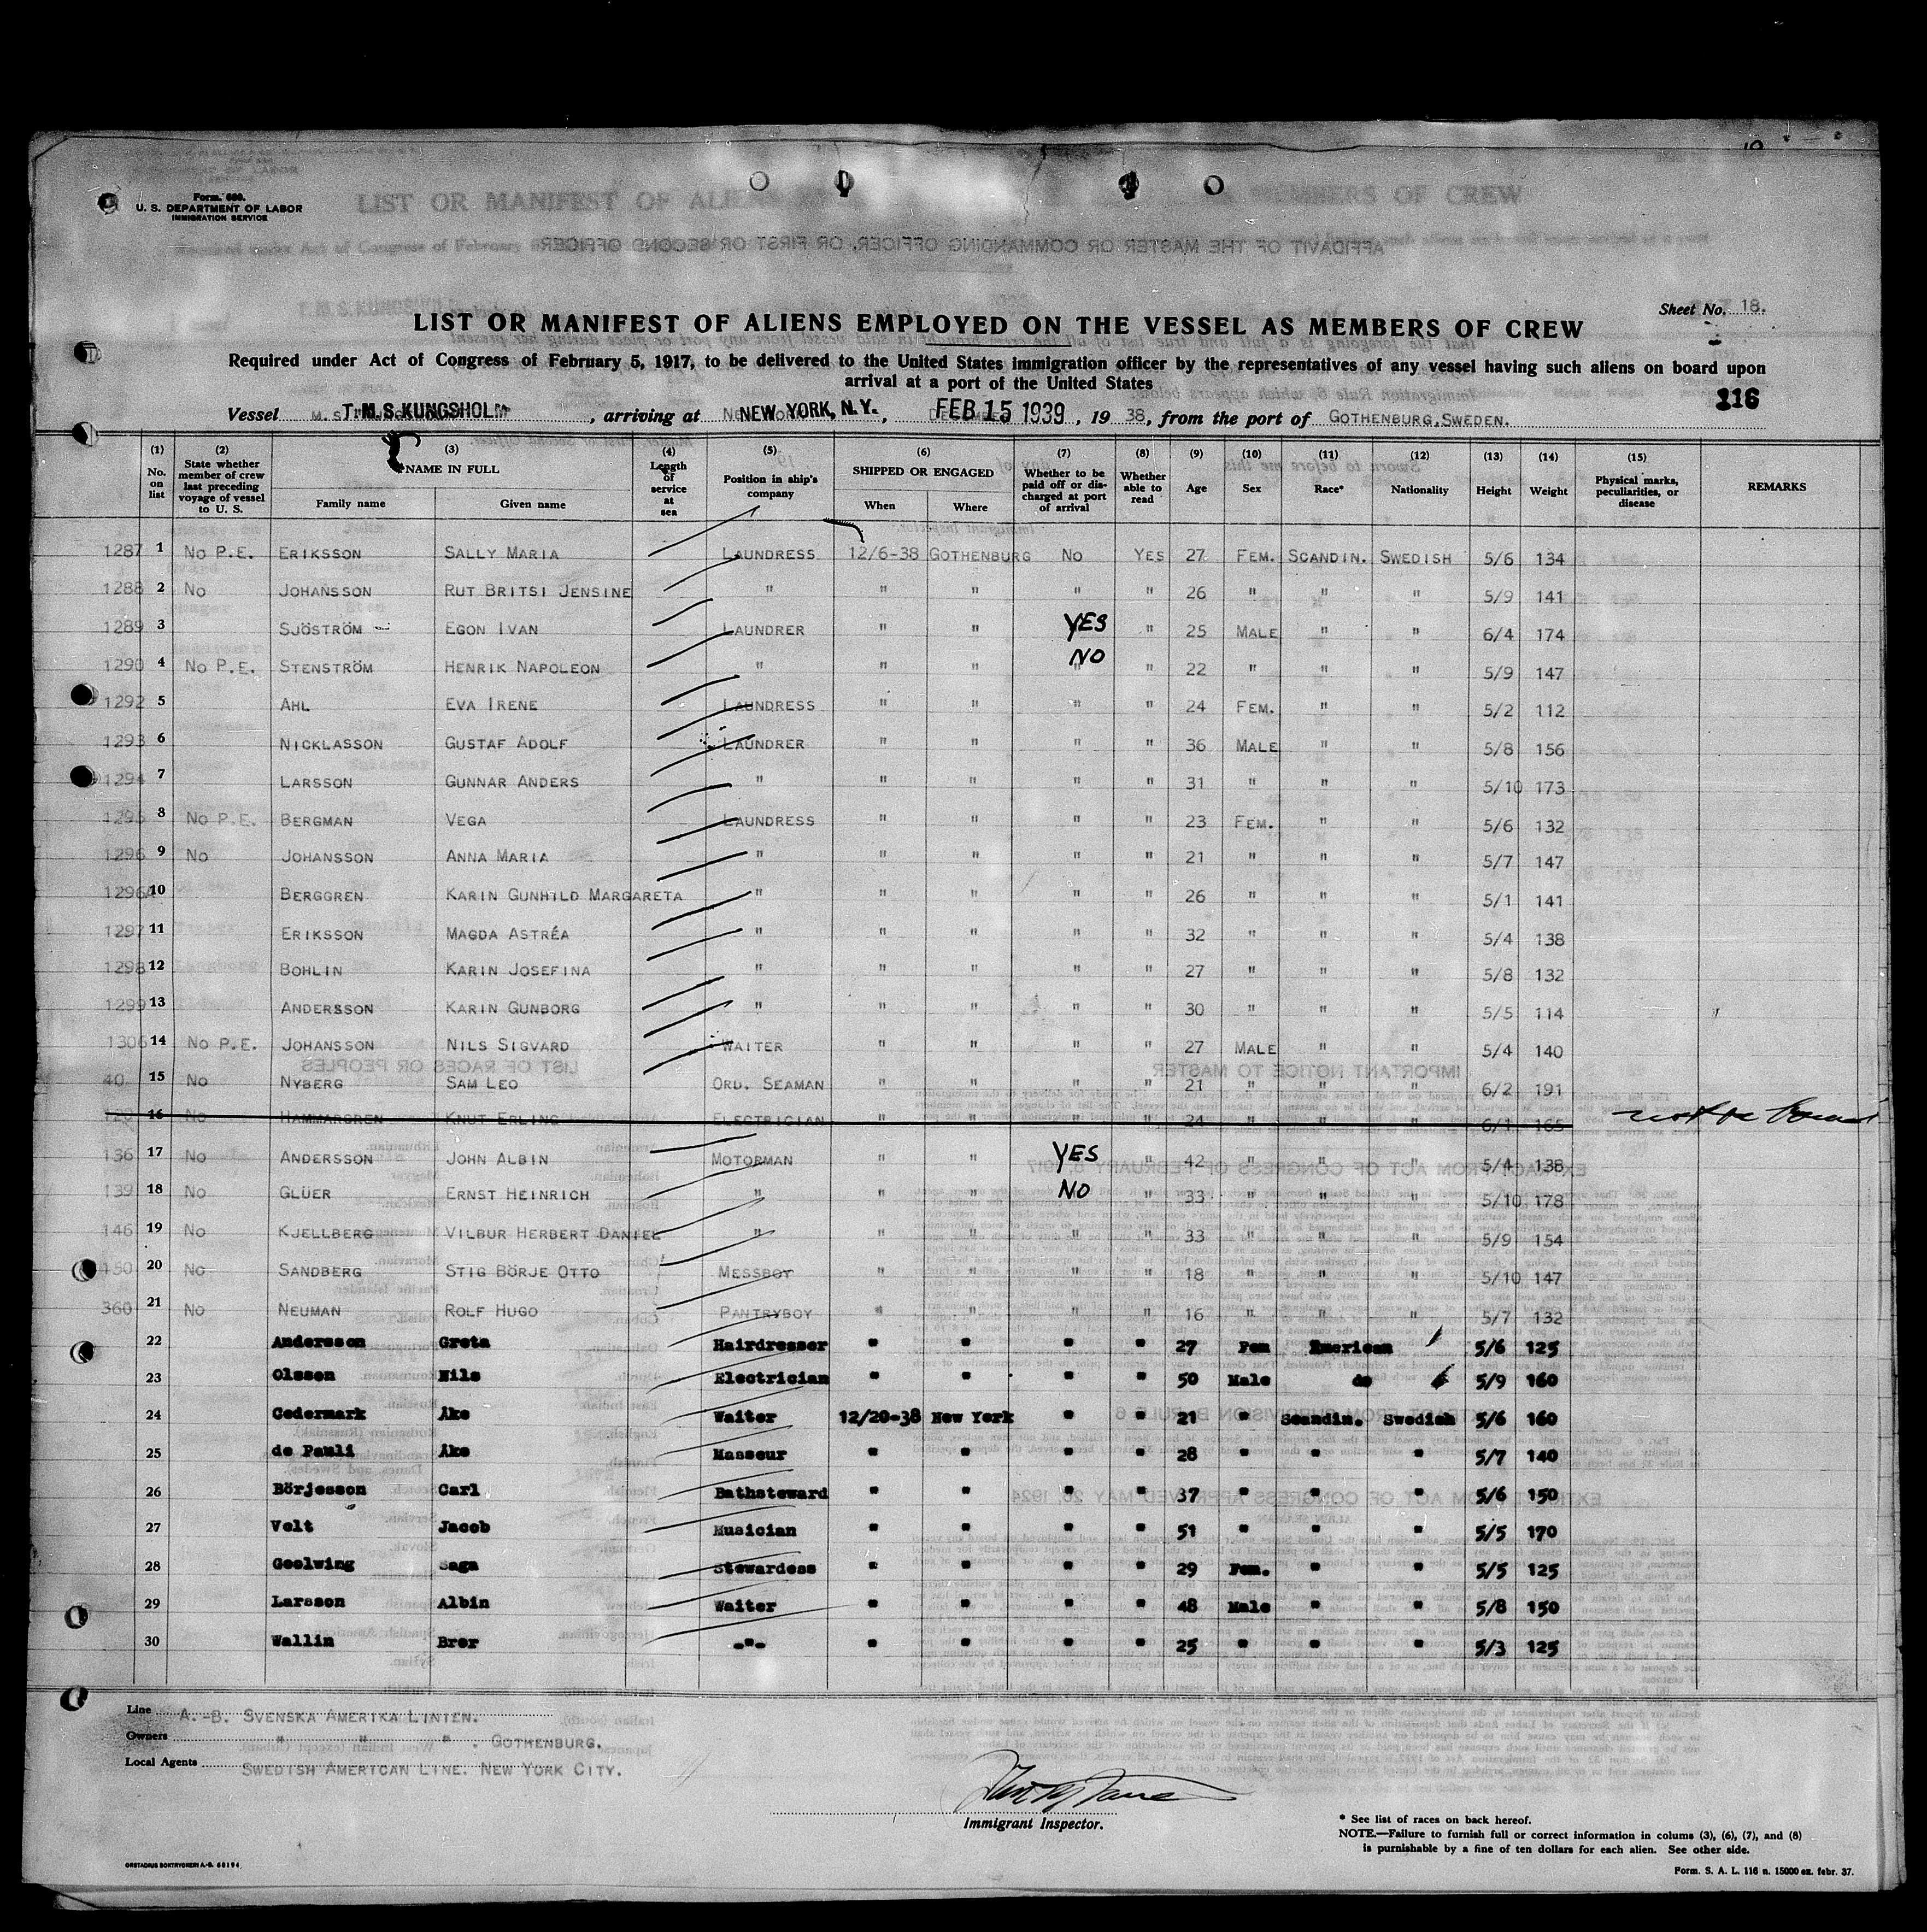 Form. 680.
U. S. DEPARTMENT OF LABOR
IMMIGRATION SERVICE
Sheet No. 18.
LIST OR MANIFEST OF ALIENS EMPLOYED ON THE VESSEL AS MEMBERS OF CREW
Required under Act of Congress of February 5, 1917, to be delivered to the United States immigration officer by the representatives of any vessel having such aliens on board upon
arrival at a port of the United States
116
Vessel T.M.S. KUNGSHOLM, arriving at NEW YORK, N.Y., FEB 15 1939, 19 38, from the port of GOTHENBURG, SWEDEN.
(1) (2) (3) (4) (5) (6) (7) (8) (9) (10) (11) (12) (13) (14) (15)
No. on list State whether member of crew last preceding voyage of vessel to U. S. NAME IN FULL Family name Given name Length of service at sea Position in ship's company SHIPPED OR ENGAGED When Where Whether to be paid off or discharged at port of arrival Whether able to read Age Sex Race* Nationality Height Weight Physical marks, peculiarities, or disease REMARKS
1287 1 No P.E. ERIKSSON SALLY MARIA LAUNDRESS 12/6-38 GOTHENBURG NO YES 27 FEM. SCANDIN. SWEDISH 5/6 134
1288 2 No JOHANSSON RUT BRITSI JENSINE " " " " " 26 " " " 5/9 141
1289 3 SJÖSTRÖM EGON IVAN LAUNDRER " " YES " 25 MALE " " 6/4 174
1290 4 No P.E. STENSTRÖM HENRIK NAPOLEON " " " NO " 22 " " " 5/9 147
1292 5 AHL EVA IRENE LAUNDRESS " " " " 24 FEM. " " 5/2 112
1293 6 NICKLASSON GUSTAF ADOLF LAUNDRER " " " " 36 MALE " " 5/8 156
1294 7 LARSSON GUNNAR ANDERS " " " " " 31 " " " 5/10 173
1295 8 No P.E. BERGMAN VEGA LAUNDRESS " " " " 23 FEM. " " 5/6 132
1296 9 No JOHANSSON ANNA MARIA " " " " " 21 " " " 5/7 147
1296A 10 BERGGREN KARIN GUNHILD MARGARETA " " " " " 26 " " " 5/1 141
1297 11 ERIKSSON MAGDA ASTRÉA " " " " " 32 " " " 5/4 138
1298 12 BOHLIN KARIN JOSEFINA " " " " " 27 " " " 5/8 132
1299 13 ANDERSSON KARIN GUNBORG " " " " " 30 " " " 5/5 114
1306 14 No P.E. JOHANSSON NILS SIGVARD WAITER " " " " 27 MALE " " 5/4 140
40 15 No NYBERG SAM LEO ORD. SEAMAN " " " " 21 " " " 6/2 191
120 16 No HAMMARGREN KNUT ERLING ELECTRICIAN " " " " 24 " " " 6/1 165
136 17 No ANDERSSON JOHN ALBIN MOTORMAN " " YES " 42 " " " 5/4 138
139 18 No GLÜER ERNST HEINRICH " " " NO " 33 " " " 5/10 178
146 19 No KJELLBERG VILBUR HERBERT DANIEL " " " " " 33 " " " 5/9 154
150 20 No SANDBERG STIG BÖRJE OTTO MESSBOY " " " " 18 " " " 5/10 147
360 21 No NEUMAN ROLF HUGO PANTRYBOY " " " " 16 " " " 5/7 132
22 Andersson Greta Hairdresser " " " " 27 Fem American 5/6 125
23 Olsson Nils Electrician " " " " 50 Male do 5/9 160
24 Cedermark Åke Waiter 12/20-38 New York " " 21 " Scandin. Swedish 5/6 160
25 de Pauli Åke Masseur " " " " 28 " " " 5/7 140
26 Börjesson Carl Bathsteward " " " " 37 " " " 5/6 150
27 Velt Jacob Musician " " " " 51 " " " 5/5 170
28 Geolwing Saga Stewardess " " " " 29 Fem. " " 5/5 125
29 Larsson Albin Waiter " " " " 48 Male " " 5/8 150
30 Wallin Brer -"- " " " " 25 " " " 5/3 125
Line A.-B. SVENSKA AMERIKA LINIEN.
Owners " " " . GOTHENBURG.
Local Agents SWEDISH AMERICAN LINE. NEW YORK CITY.
Immigrant Inspector.
* See list of races on back hereof.
NOTE.—Failure to furnish full or correct information in colums (3), (6), (7), and (8)
is punishable by a fine of ten dollars for each alien. See other side.
Form. S. A. L. 116 n. 15000 ex. febr. 37.